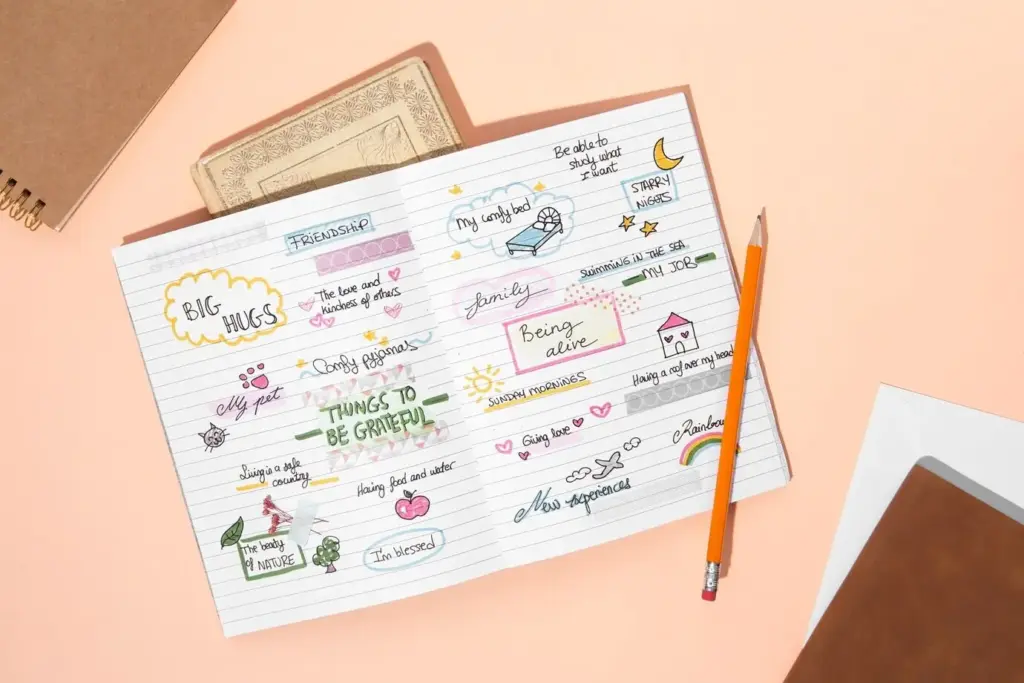 FRIENDSHIP
BIG
HUGS
The love and
kindness of others
Comfy pyjamas
My pet
THINGS TO
BE GRATEFUL
Living is a safe
country
Having food and water
The beaty
of NATURE
I'm blessed
Be able to
study what
I want
My comfy bed
STARRY
NIGHTS
SWIMMING IN THE SEA
MY JOB
family
Being
alive
SUNDAY MORNINGS
Having a roof over my head
Giving love
Rainbow
New experiences